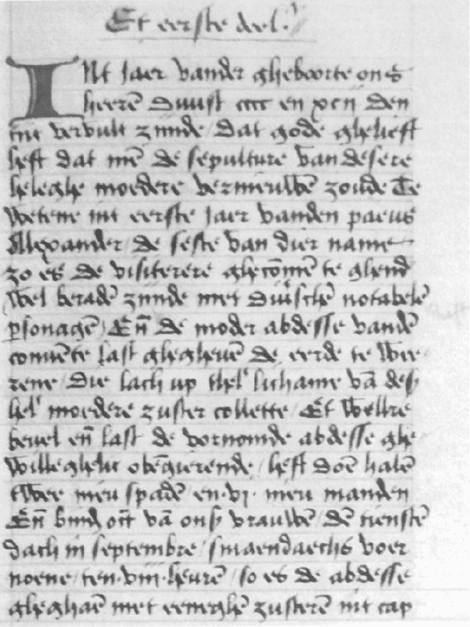 Et eerste deel.
Int jaer vander gheboorte ons
heerē Duust cccc en xcij den
tijt vervult zijnde dat gode ghelieft
heft dat mē de sepulture van desere
heleghe moedere vernieuwē zoude Te
wetene int eerste jaer vanden paeus
Alexander de seste van dier name
zo es de visiterere ghecomē te ghend
wel beradē zijnde met diuischē notabelē
psonagē / Eñ de moder abdesse vandē
convēte last ghegheuē de eerde te weer
rene / die lach up thel' lichame vā des
hel' moedere zuster collette / Et welke
beuel eñ last de vornomde abdesse ghe
willeghelic obedierende / heft doē halē
twee nieu spadē en .vj. nieu manden
Eñ binđ oct vā ons vrauwē / dē tienstē
dach in septembre / smaendaechs voer
noene / ten .viij. heurē / so es de abdesse
ghegaē met eeneghē zusterē int cap